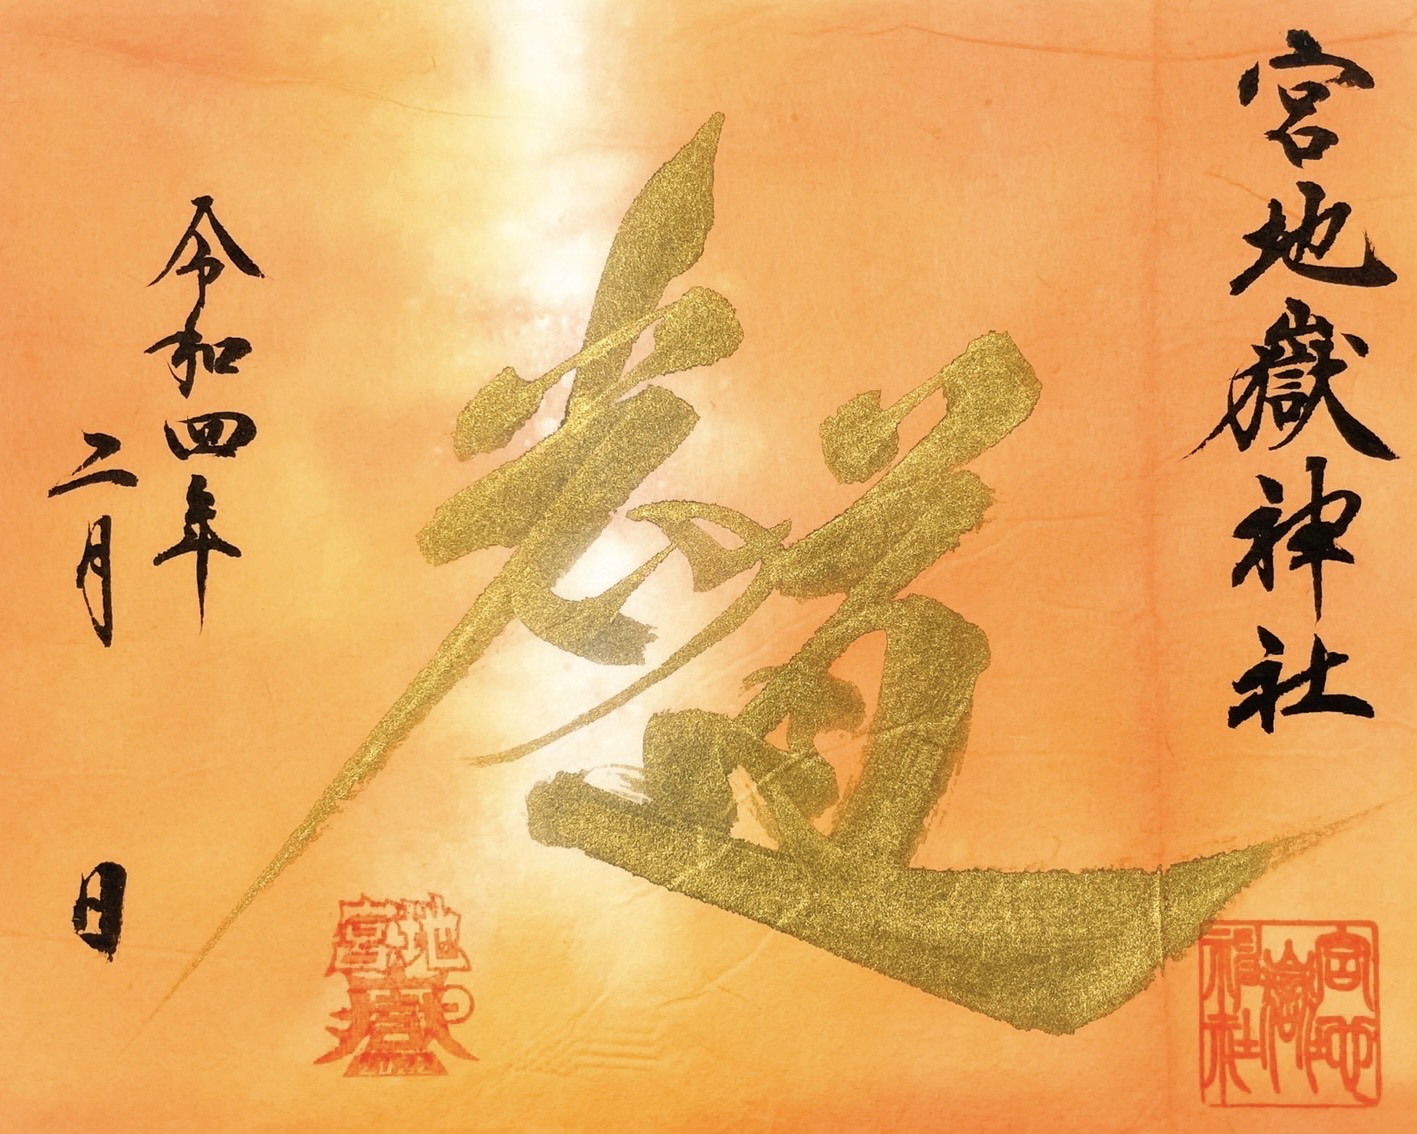 宮地嶽神社
宮地嶽神社
光の道
宮地嶽
令和四年
二月 日